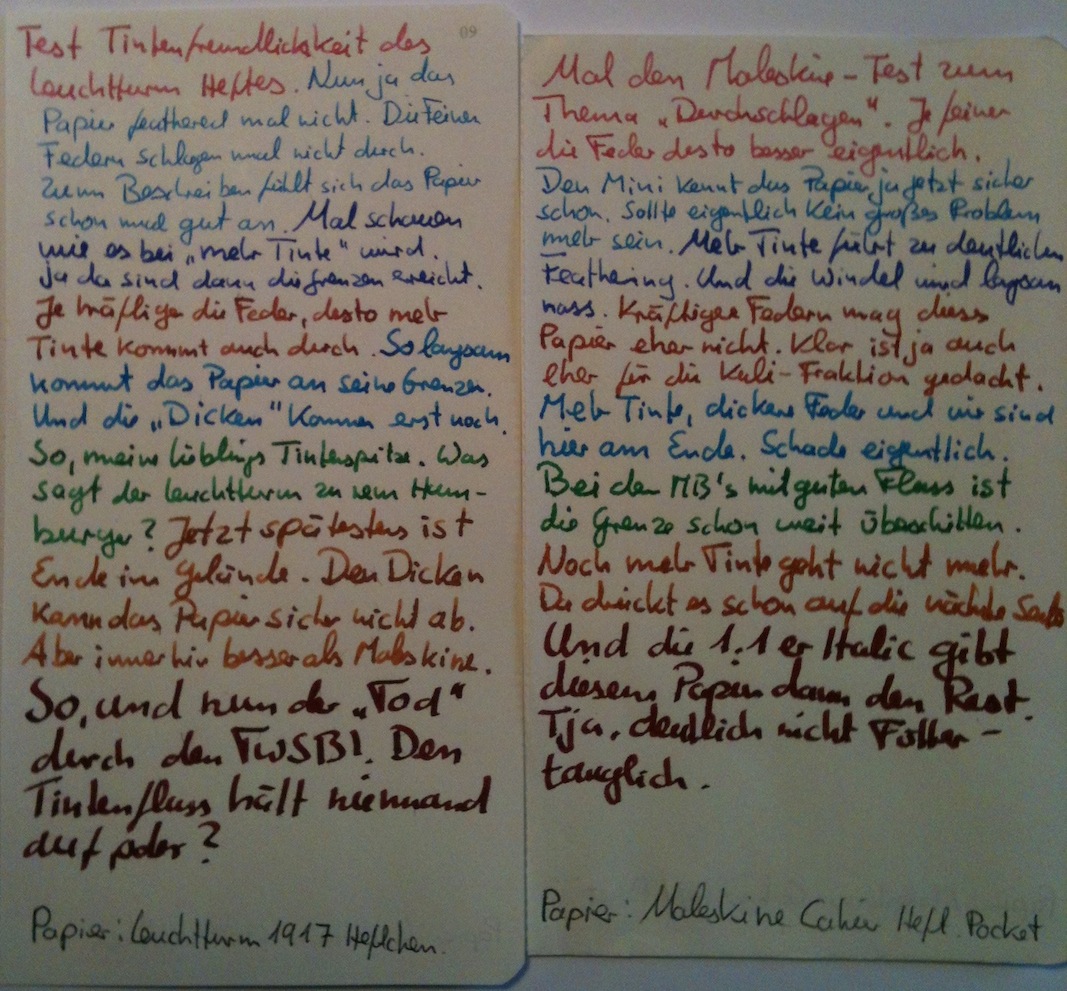 09
Test Tintenfreundlichkeit des
Leuchtturm Heftes. Nun ja das
Papier feathered mal nicht. Die Feinen
Federn schlagen mal nicht durch.
Zum Beschreiben fühlt sich das Papier
schon mal gut an. Mal schauen
wie es bei „mehr Tinte" wird.
Ja da sind dann die Grenzen erreicht.
Je kräftiger die Feder, desto mehr
Tinte kommt auch durch. So langsam
kommt das Papier an seine Grenzen.
Und die „Dicken" kommen erst noch.
So, meine Lieblings Tintenspritze. Was
sagt der Leuchtturm zu nem Ham-
burger? Jetzt spätestens ist
Ende im Gelände. Den Dicken
kann das Papier sicher nicht ab.
Aber immerhin besser als Moleskine.
So, und nun der „Tod"
durch den TWSBI. Den
Tintenfluss hält niemand
auf oder?
Papier: Leuchtturm 1917 Heftchen.
Mal den Moleskine-Test zum
Thema „Durchschlagen". Je feiner
die Feder desto besser eigentlich.
Den Mini kennt das Papier ja jetzt sicher
schon. Sollte eigentlich kein großes Problem
mehr sein. Mehr Tinte führt zu deutlichen
Feathering. Und die Windel wird langsam
nass. Kräftigere Federn mag dieses
Papier eher nicht. Klar ist ja auch
eher für die Kuli-Fraktion gedacht.
Mehr Tinte, dickere Feder und wir sind
hier am Ende. Schade eigentlich.
Bei den MB's mit guten Fluss ist
die Grenze schon weit überschitten.
Noch mehr Tinte geht nicht mehr.
Da drückt es schon auf die nächste Seite
Und die 1.1 er Italic gibt
diesem Papier dann den Rest.
Tja, deutlich nicht Füller-
tauglich.
Papier: Moleskine Cahier Heft Pocket